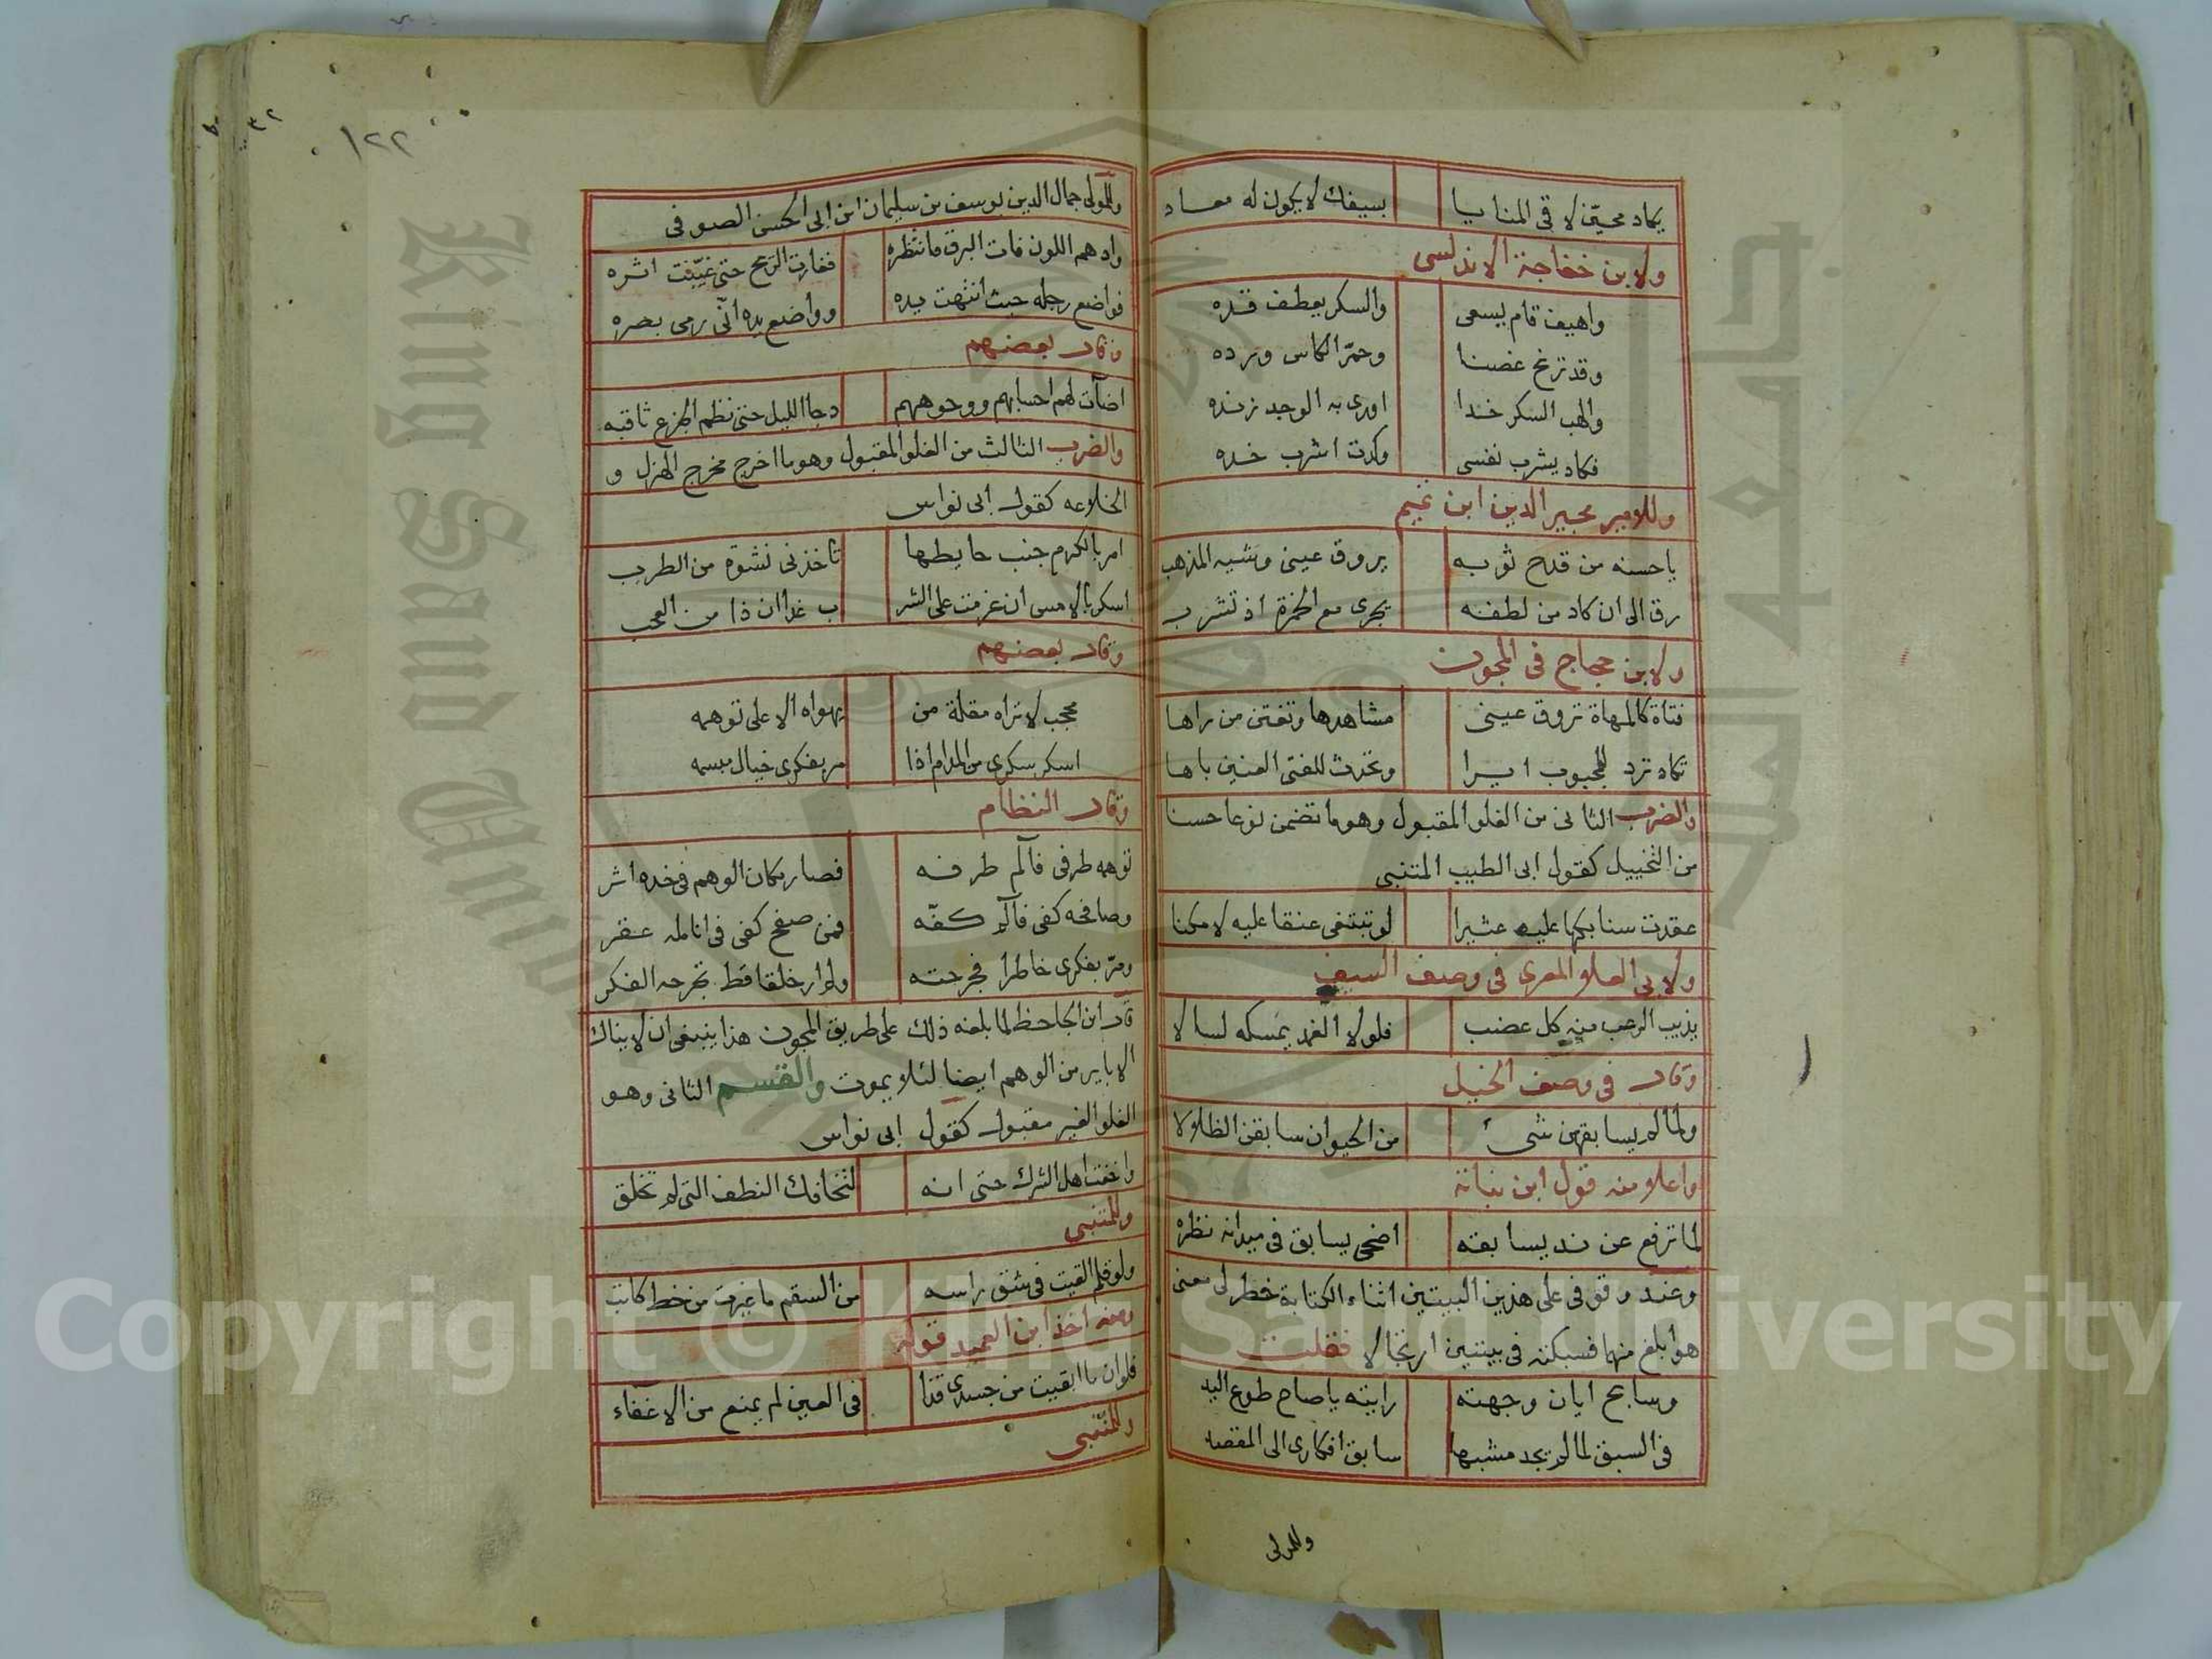 يكاد محيّن لاقى المنايا بسيفك لا يكون له معاد
ولابن خفاجة الاندلسى
واهيف قام يسعى والسكر يعطف قده
وقد ترنح غصنا وحمّر الكاس ورده
والهب السكر خدا اورى به الوجد زنده
فكاد يشرب نفسى وكدت اشرب خده
وللامير مجير الدين ابن تميم
ياحسنه من قدح ثوبه يروق عينى وشيه المذهب
رق الى ان كاد من لطفه يجرى مع الخمرة اذ تشرب
ولابن حجاج فى المجون
فتاة كالمهاة تروق عينى مشاهدها وتفتن من راها
تكاد ترد للمجبوب ايرا وتحدث للفتى العنين باها
والضرب الثانى من الغلو المقبول وهو ما تضمن نوعا حسنا
من التخييل كقول ابى الطيب المتنبى
عقدت سنابكها عليه عثيرا لو تبتغى عنقا عليه لامكنا
ولابى العلاء المعرى فى وصف السيف
يذيب الرعب منه كل عضب فلولا الغمد يمسكه لسالا
وقال فى وصف الخيل
ولما لم يسابقهن شىء من الحيوان سابقن الظلالا
واعلا منه قول ابن نباتة
لما ترفع عن ند يسابقه اضحى يسابق فى ميدانه نظره
وعند وقوفى على هذين البيتين اثناء الكتابة خطر لى معنى
هو ابلغ منهما فسبكته فى بيتين ارتجالا فقلت
وسابح ايان وجهته رايته ياصاح طوع اليد
فى السبق لما لم يجد مشبها سابق افكارى الى المقصد
وللمولى
١٢٢
٣٢
وللمولى جمال الدين يوسف بن سليمان ابن ابى الحسن الصوفى
وادهم اللون فات البرق ما نتظره فغارت الريح حتى غيّبت اثره
فواضع رجله حيث انتهت يده وواضع يده انّى رمى بصره
وقال بعضهم
اضآت لهم احسابهم ووجوههم دجا الليل حتى نظم الجزع ثاقبه
والضرب الثالث من الغلو المقبول وهو ما اخرج مخرج الهزل و
الخلاعه كقول ابى نواس
امر بالكرم جنب حايطها تاخذنى نشوة من الطرب
اسكر بالامس ان عزمت على الشر ب غدا ان ذا من العجب
وقال بعضهم
محجب لا تراه مقلة من يهواه الا على توهمه
اسكر سكرى من المدام اذا مر بفكرى خيال مبسمه
وقال النظام
توهمه طرفى فآلم طرفه فصار مكان الوهم فى خده اثر
وصافحه كفى فآلم كفّه فمن صفح كفى فى انامله عقر
ومرّ بفكرى خاطرا فجرحته ولم ار خلقا قط تجرحه الفكر
قال ابن الجاحظ لما بلغه ذلك على طريق المجون هذا ينبغى ان لا يناك
الا باير من الوهم ايضا لئلا يموت والقسم الثانى وهو
الغلو الغير مقبول كقول ابى نواس
واخفت اهل الشرك حتى انه لتخافك النطف التى لم تخلق
وللمتنبى
ولو قلم القيت فى شق راسه من السقم ما غيرت من خط كاتب
ومنه اخذ ابن العميد قوله
فلو ان ما ابقيت من جسدى قذا فى العين لم يمنع من الاغفاء
وللمتنبى
King Saud Univ
Copyright © King Saud University